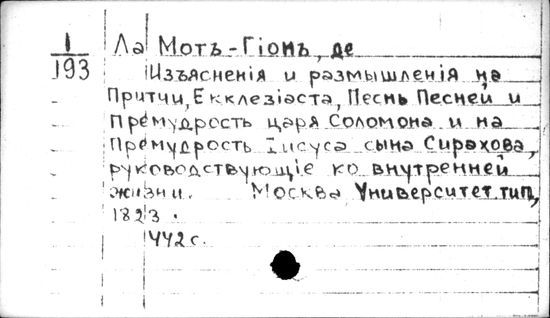 1
193
Ла Мотъ-Гіонъ, де
Изъясненія и размышленія на
Притчи, Екклезіаста, Песнь Песней и
Премудрость царя Соломона и на
Премудрость Іисуса сына Сирахова,
руководствующіе ко внутренней
жизни. Москва, Университет. тип.,
1823.
442 с.